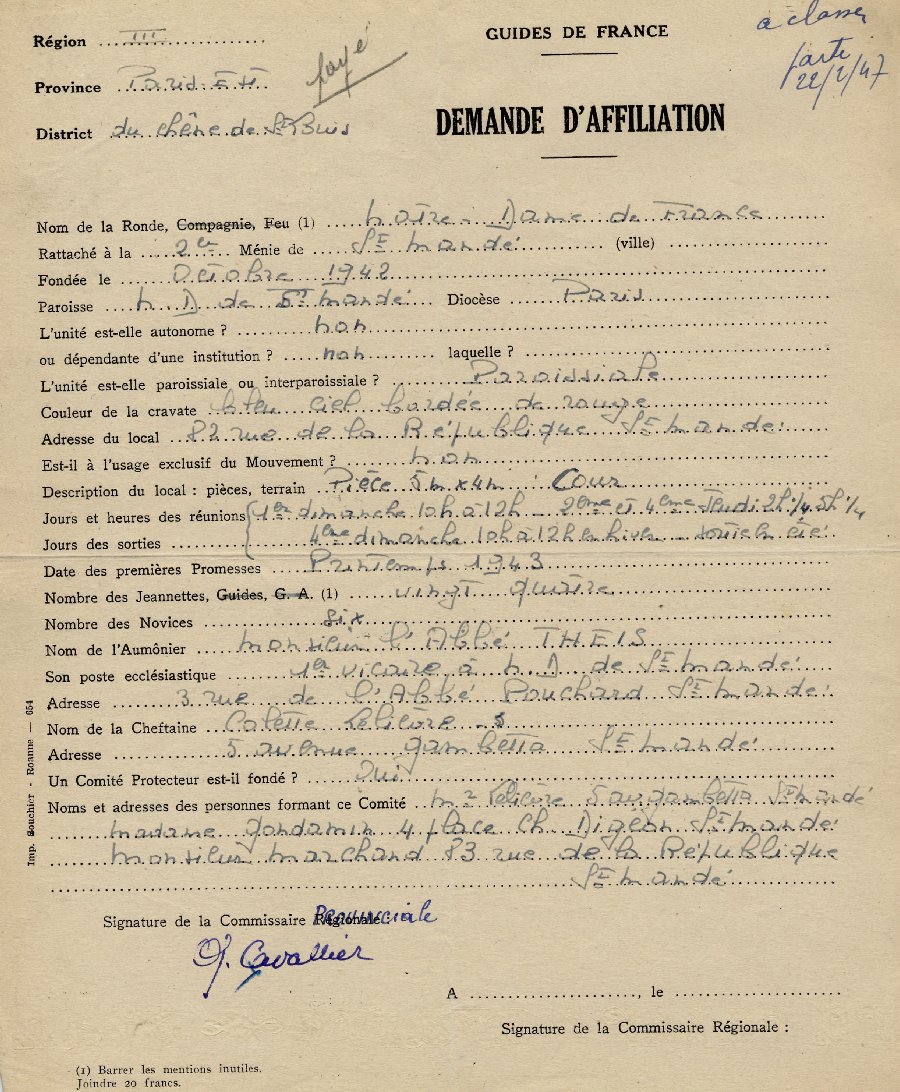 Région III
GUIDES DE FRANCE
à classer
Province Paris-Est
payé
carte
22/2/47
District du chêne de St Louis
DEMANDE D'AFFILIATION
Nom de la Ronde, Compagnie, Feu (1) Notre-Dame de France
Rattaché à la 2e Ménie de St Mandé (ville)
Fondée le Octobre 1942
Paroisse N D de St Mandé Diocèse Paris
L'unité est-elle autonome ? non
ou dépendante d'une institution ? non laquelle ?
L'unité est-elle paroissiale ou interparoissiale ? Paroissiale
Couleur de la cravate bleu ciel bordée de rouge
Adresse du local 82 rue de la République St Mandé
Est-il à l'usage exclusif du Mouvement ? non
Description du local : pièces, terrain Pièce 5m x 4m : Cour
Jours et heures des réunions 1er dimanche 10h à 12h - 2ème et 4ème Jeudi 2h 1/4 5h 1/4
Jours des sorties 4ème dimanche 10h à 12h en hiver - sortie en été
Date des premières Promesses Printemps 1943
Nombre des Jeannettes, Guides, G. A. (1) vingt quatre
Nombre des Novices six
Nom de l'Aumônier Monsieur l'Abbé THEIS
Son poste ecclésiastique 1er vicaire à N D de St Mandé
Adresse 3 rue de l'Abbé Pouchard St Mandé
Nom de la Cheftaine Colette Lelièvre
Adresse 5 avenue Gambetta St Mandé
Un Comité Protecteur est-il fondé ? Oui
Noms et adresses des personnes formant ce Comité Mr Lelièvre 5 av gambetta St Mandé
Madame Gondamin 4 place Ch. Digeon St Mandé
Monsieur Marchand 83 rue de la République
St Mandé
Signature de la Commissaire Régionale : PROVINCIALE
Cavallier
A , le
Signature de la Commissaire Régionale :
(1) Barrer les mentions inutiles.
Joindre 20 francs.
Imp. Souchier - Roanne — 654